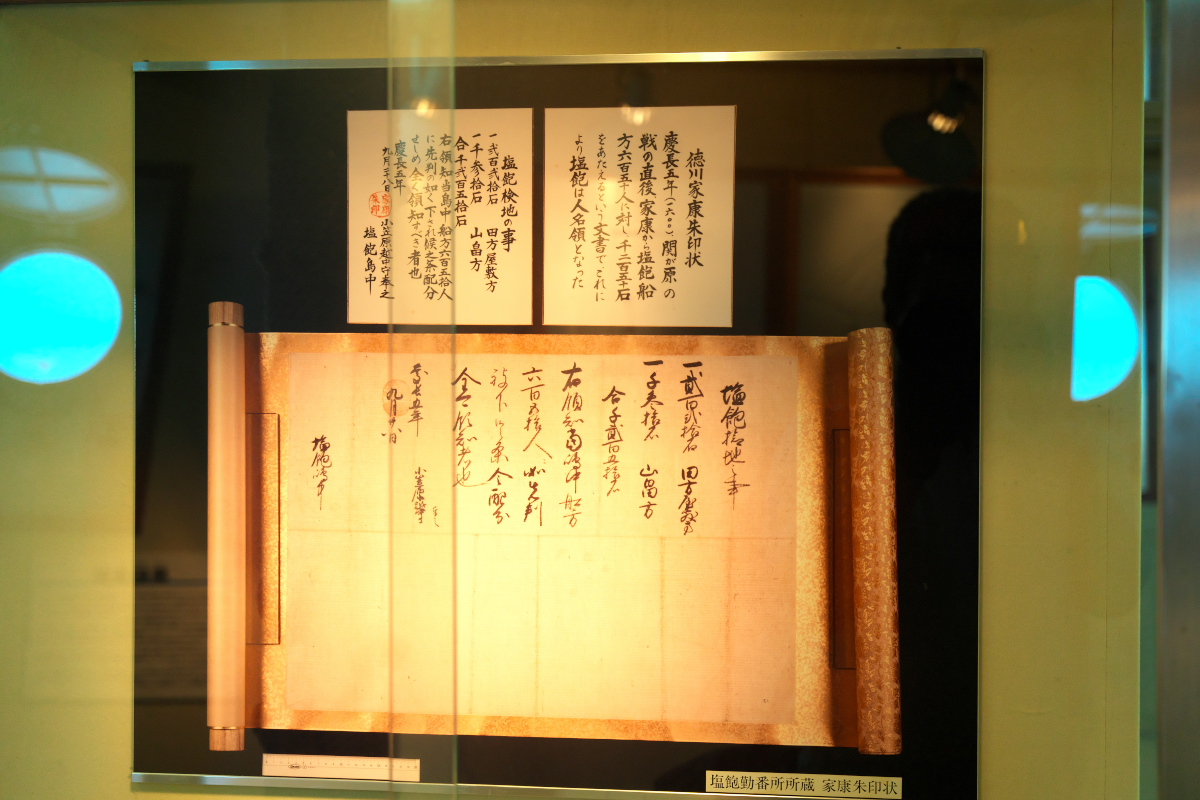 徳川家康朱印状
慶長五年(一六〇〇)関が原の
戦の直後家康から塩飽船
方六百五十人に対し千二百五十石
をあたえるという文書でこれに
より塩飽は人名領となった
塩飽検地の事
一弐百弐拾石 田方屋敷方
一千参拾石 山畠方
合千弐百五拾石
右領知当島中船方六百五拾人
に先判の如く下され候之条配分
せしめ全く領知すべき者也
慶長五年
九月二八日 小笠原越中守奉之
塩飽島中
塩飽検地之事
一弐百弐拾石 田方屋敷方
一千参拾石 山畠方
合千弐百五拾石
右領知当島中船方
六百五拾人如先判
被下候之条令配分
全可領知者也
慶長五年
九月廿八日
塩飽島中
塩飽勤番所所蔵 家康朱印状